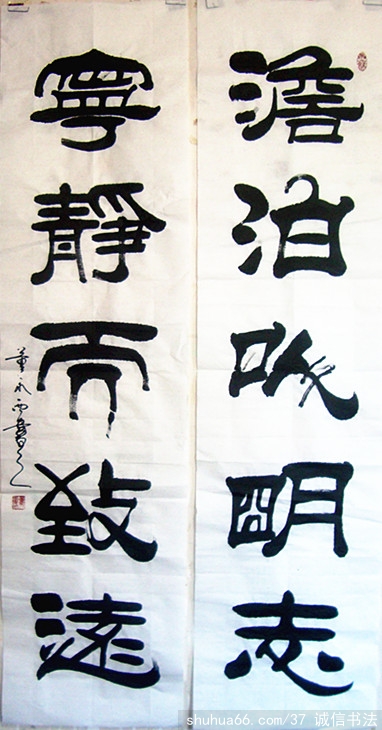 澹泊以明志
寧靜而致遠
董永西書
shuhua66.com/37 诚信书法